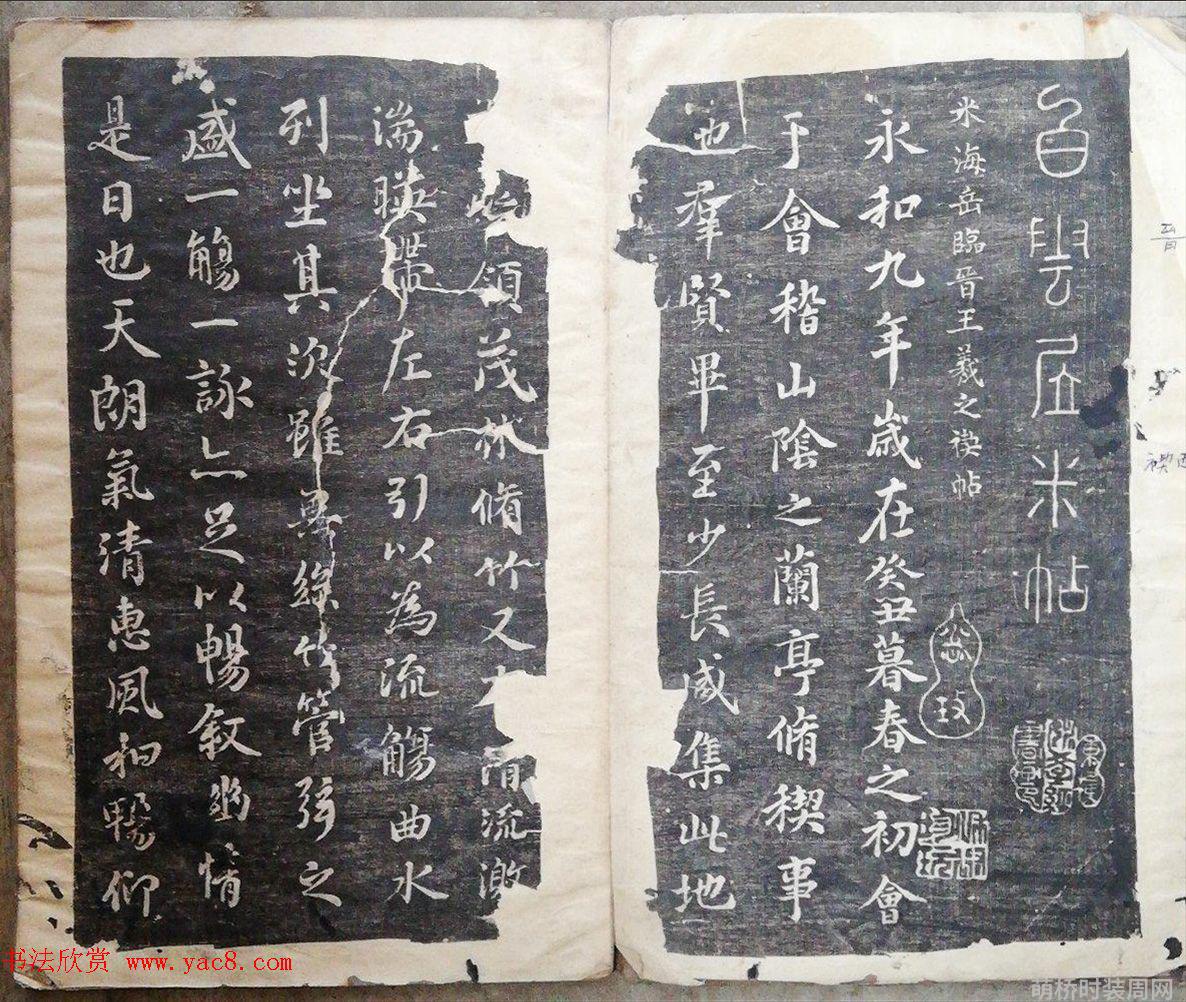 白雲居米帖
米海岳臨晉王羲之禊帖
永和九年歲在癸丑暮春之初會
于會稽山陰之蘭亭脩稧事
也羣賢畢至少長咸集此地
領茂林脩竹又清流激
湍暎帶左右引以為流觴曲水
列坐其次雖無絲竹管弦之
盛一觴一詠亦足以暢敘幽情
是日也天朗氣清惠風和暢仰
书法欣赏 www.yac8.com
萌桥时装周网